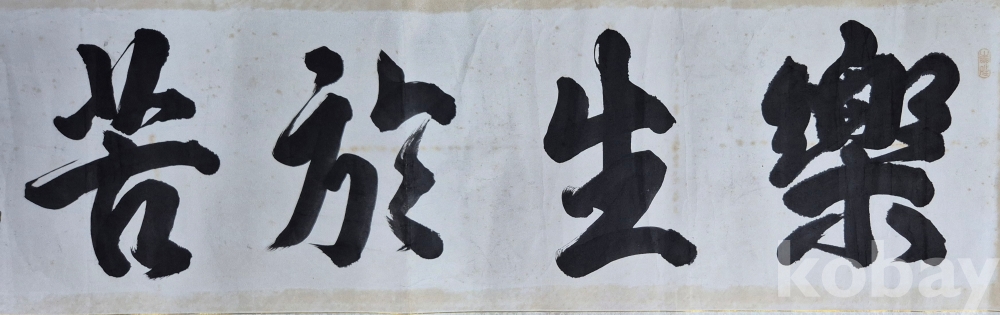 樂生於苦
kobay